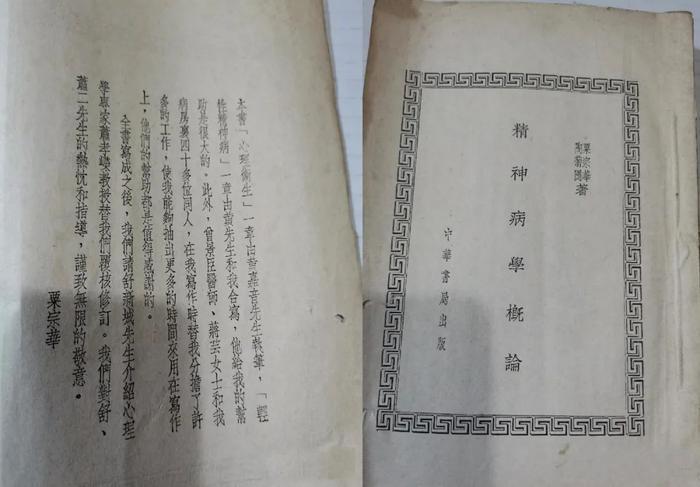 本書「心理衛生」一章由黃嘉音先生執筆，「輕
性精神病」一章由黃先生和我合寫，他給我的幫
助是很大的。此外，曾景臣醫師、蔣芸女士和我
病房裏四十多位同人，在我寫作時替我分擔了許
多的工作，使我能夠抽出更多的時間來用在寫作
上，他們的幫助都是值得感謝的。
全書寫成之後，我們請舒新城先生介紹心理
學專家蕭孝嶸教授替我們覆核修訂。我們對舒、
蕭二先生的熱忱和指導，謹致無限的敬意。
粟宗華
粟宗華
陶菊隱
著
精神病學概論
中華書局出版